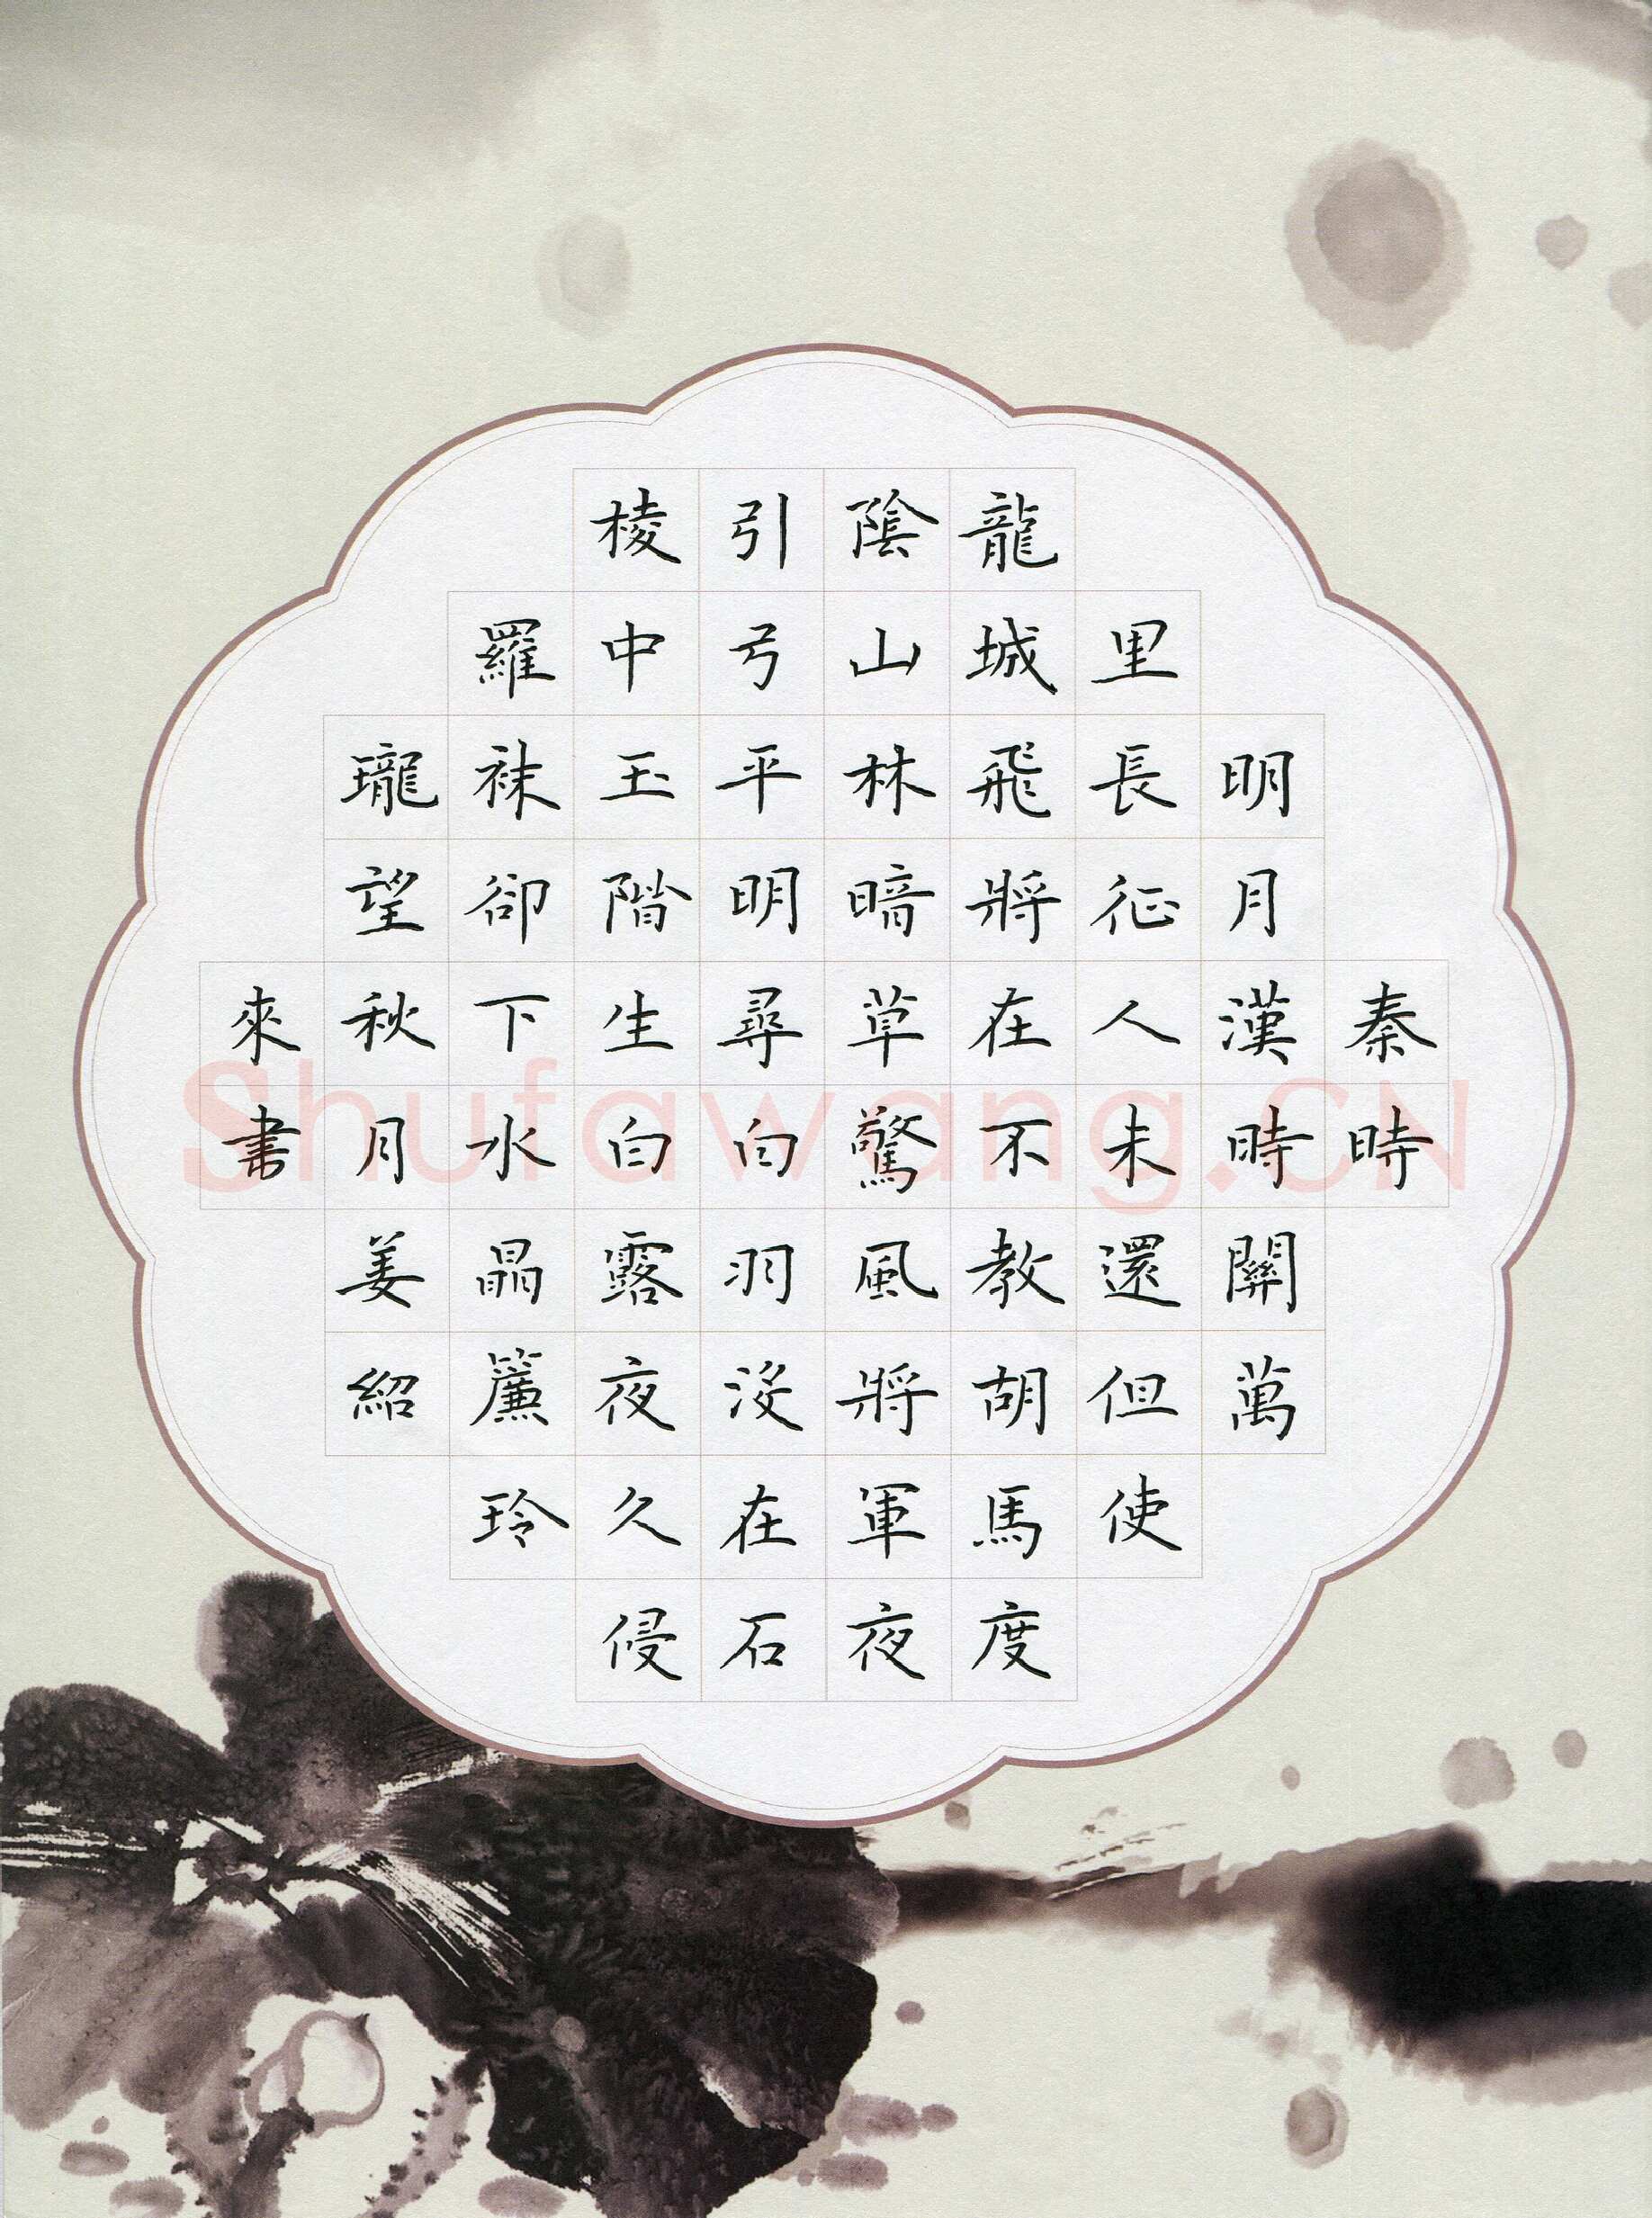 秦時
明月漢時關萬
里長征人未還但使
龍城飛將在不教胡馬度
陰山林暗草驚風將軍夜
引弓平明尋白羽沒在石
棱中玉階生白露夜久侵
羅袜卻下水晶簾玲
瓏望秋月姜紹
來書
Shufawang.CN